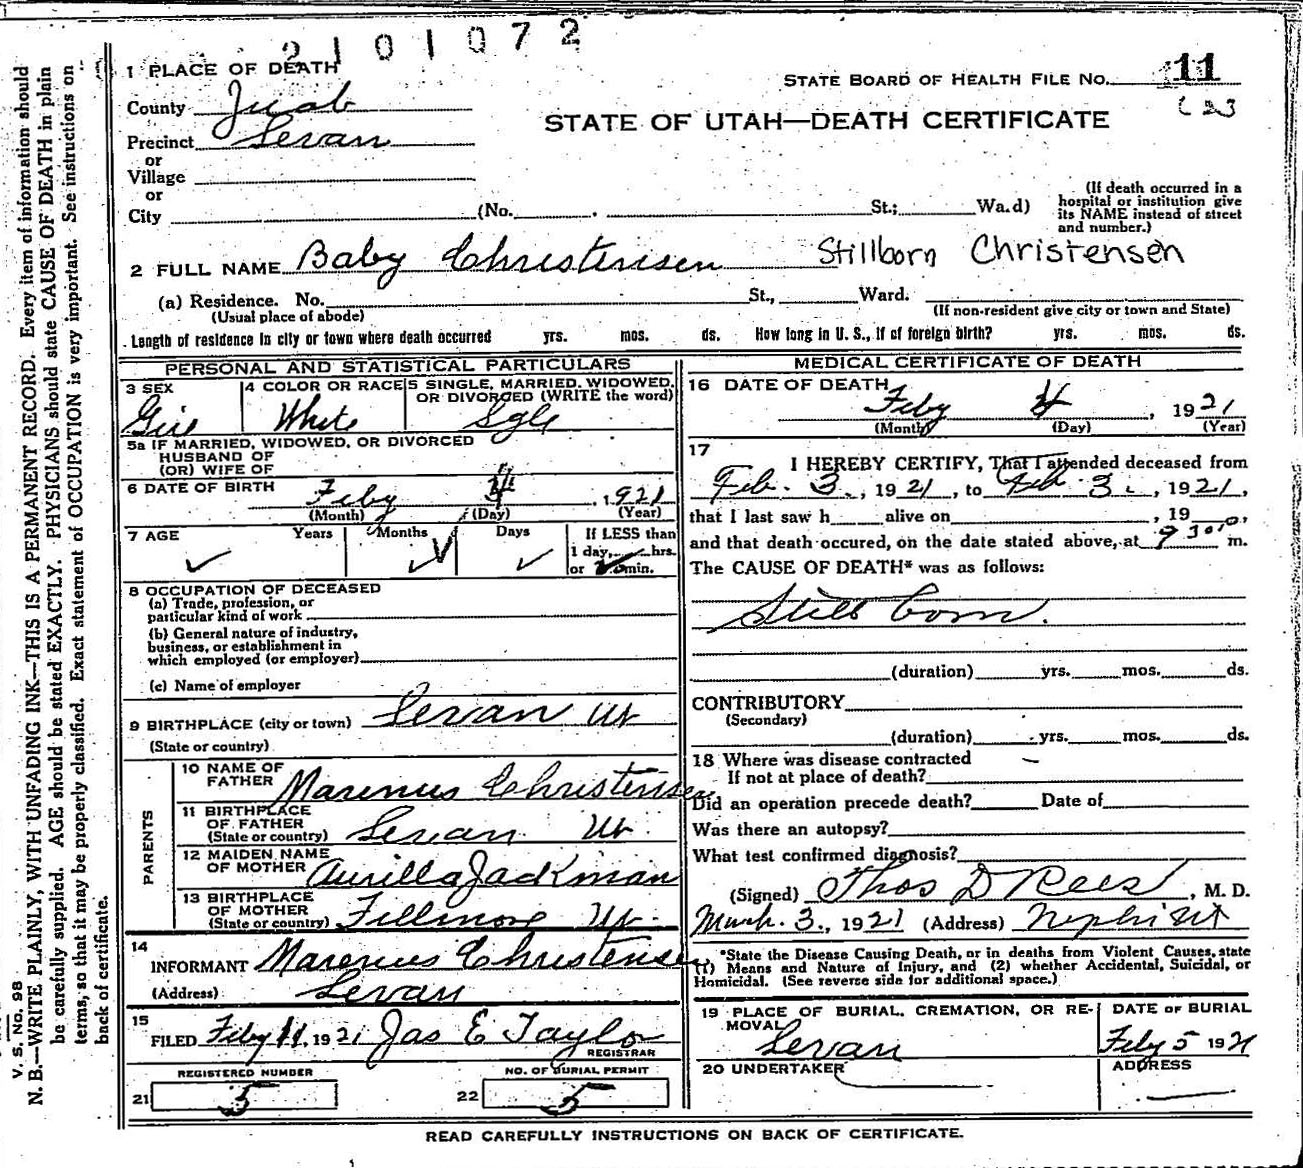 2101072
1 PLACE OF DEATH
STATE BOARD OF HEALTH FILE NO. 11
County Juab
STATE OF UTAH—DEATH CERTIFICATE
Precinct Levan
or
Village
or
City (No. St.; Wa.d)
(If death occurred in a
hospital or institution give
its NAME instead of street
and number.)
2 FULL NAME Baby Christensen Stillborn Christensen
(a) Residence. No. St., Ward.
(Usual place of abode) (If non-resident give city or town and State)
Length of residence in city or town where death occurred yrs. mos. ds. How long in U. S., if of foreign birth? yrs. mos. ds.
PERSONAL AND STATISTICAL PARTICULARS
3 SEX
Girl
4 COLOR OR RACE
White
5 SINGLE, MARRIED, WIDOWED,
OR DIVORCED (WRITE the word)
Sgle
5a IF MARRIED, WIDOWED, OR DIVORCED
HUSBAND OF
(OR) WIFE OF
6 DATE OF BIRTH Feby 4 1921
(Month) (Day) (Year)
7 AGE Years Months Days If LESS than
1 day, hrs.
or min.
8 OCCUPATION OF DECEASED
(a) Trade, profession, or
particular kind of work
(b) General nature of industry,
business, or establishment in
which employed (or employer)
(c) Name of employer
9 BIRTHPLACE (city or town) Levan Ut
(State or country)
PARENTS
10 NAME OF
FATHER Marenus Christensen
11 BIRTHPLACE
OF FATHER
(State or country) Levan Ut.
12 MAIDEN NAME
OF MOTHER Aurilla Jackman
13 BIRTHPLACE
OF MOTHER
(State or country) Fillmore Ut.
14
INFORMANT Marenus Christensen
(Address) Levan
15
FILED Feby 11, 1921 Jas E Taylor
REGISTRAR
REGISTERED NUMBER
21 5
NO. OF BURIAL PERMIT
22 5
MEDICAL CERTIFICATE OF DEATH
16 DATE OF DEATH
Feby 4, 1921
(Month) (Day) (Year)
17
I HEREBY CERTIFY, That I attended deceased from
Feb. 3., 1921, to Feb 3., 1921,
that I last saw h alive on , 19
and that death occured, on the date stated above, at 9 30 m.
The CAUSE OF DEATH* was as follows:
Still born.
(duration) yrs. mos. ds.
CONTRIBUTORY
(Secondary)
(duration) yrs. mos. ds.
18 Where was disease contracted
If not at place of death?
Did an operation precede death? Date of
Was there an autopsy?
What test confirmed diagnosis?
(Signed) Thos D Rees, M. D.
March. 3., 1921 (Address) Nephi Ut
*State the Disease Causing Death, or in deaths from Violent Causes, state
(1) Means and Nature of Injury, and (2) whether Accidental, Suicidal, or
Homicidal. (See reverse side for additional space.)
19 PLACE OF BURIAL, CREMATION, OR RE-
MOVAL
Levan
DATE OF BURIAL
Feby 5 1921
20 UNDERTAKER
ADDRESS
READ CAREFULLY INSTRUCTIONS ON BACK OF CERTIFICATE.
V. S. No. 98
N. B.—WRITE PLAINLY, WITH UNFADING INK—THIS IS A PERMANENT RECORD. Every item of information should
be carefully supplied. AGE should be stated EXACTLY. PHYSICIANS should state CAUSE OF DEATH in plain
terms, so that it may be properly classified. Exact statement of OCCUPATION is very important. See instructions on
back of certificate.